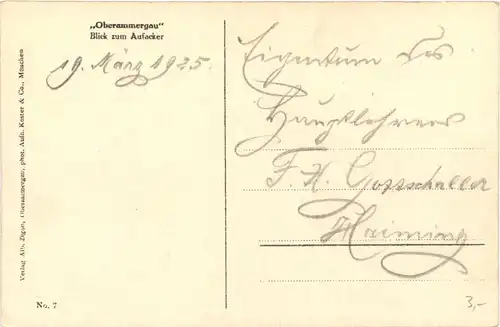 „Oberammergau"
Blick zum Aufacker
19. März 1925.
Eigentum des
Hauptlehrers
F. H. Gottschaller
Haiming
Verlag Alb. Zigan, Oberammergau, phot. Aufn. Kester & Co., München
No. 7
3,-